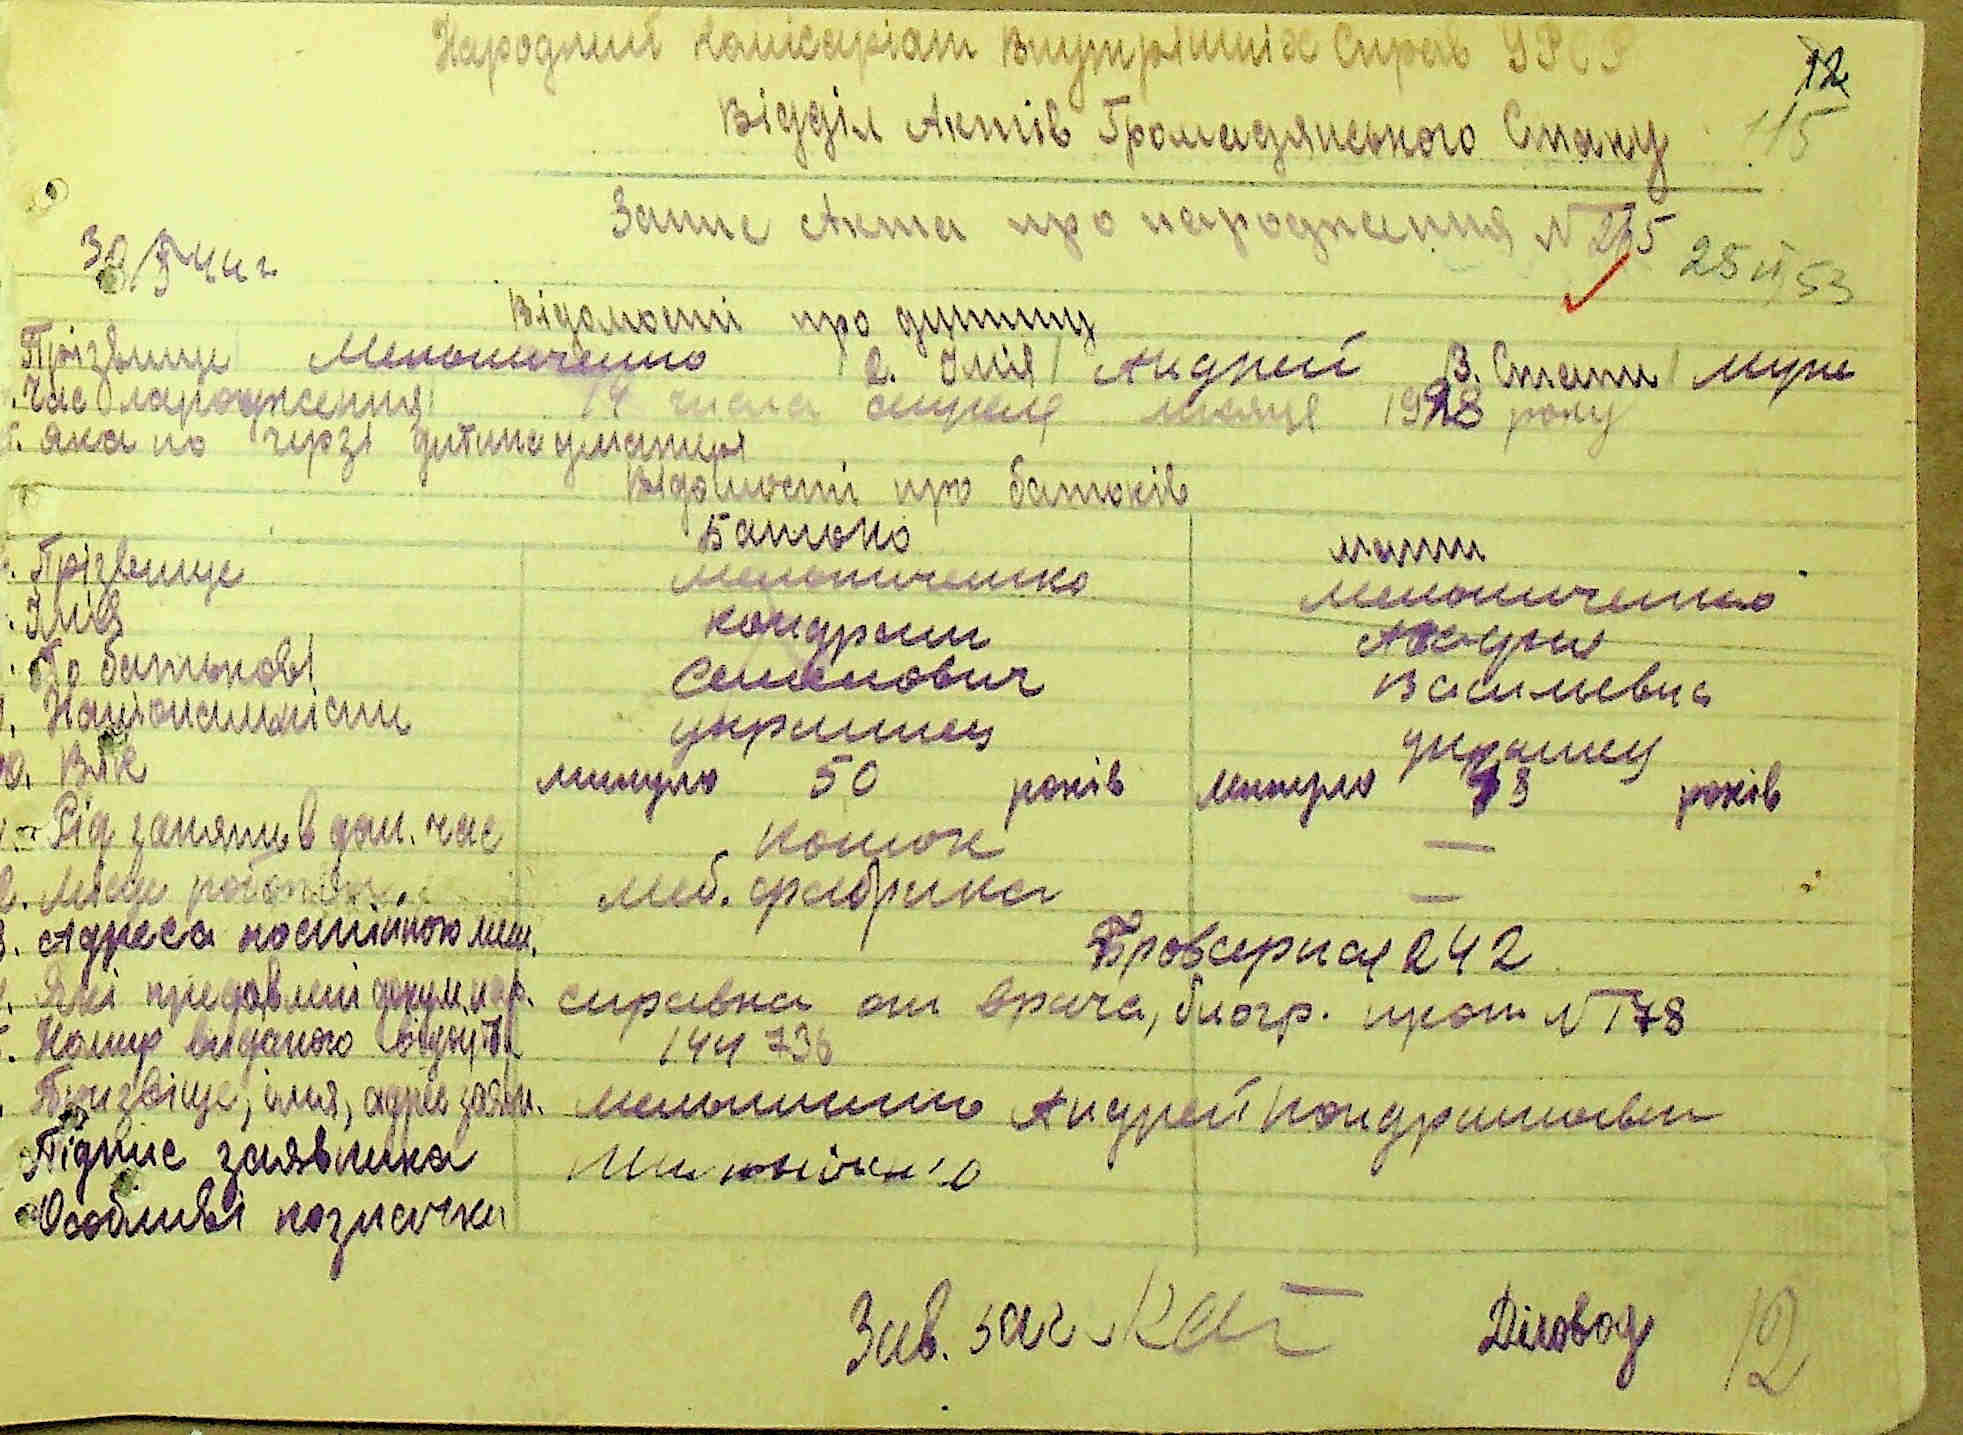 Народний Комісаріат Внутрішніх Справ УРСР
12
Відділ Актів Громадянського Стану
115
Запис Акта про народження №
25 53
30/5 44 г
Відомості про дитину
Прізвище Мельниченко 2. Імія Андрей 3. Стать муж
Час народження 14 числа месяця 1928 року
яка по черзі дитина у матері
Відомості про батьків
Батько мати
Прізвище Мельниченко Мельниченко
Імія Кондрат
По батькові Семенович Васильевна
Національність украинец украинец
10. Вік минуло 50 років минуло років
Рід занять в дан. час конюх —
Місце роботи меб. фабрика —
Адреса постійного меш. 242
Які предявлені докум. нар. справка от врача, биогр. прот. № 178
Номир виданого свідоцтва 144 736
Призвіще, імя, адрес заявн. Мельниченко Андрей Кондратьевич
Підпис заявника
Особливі позначки
Зав. загс Діловод 12